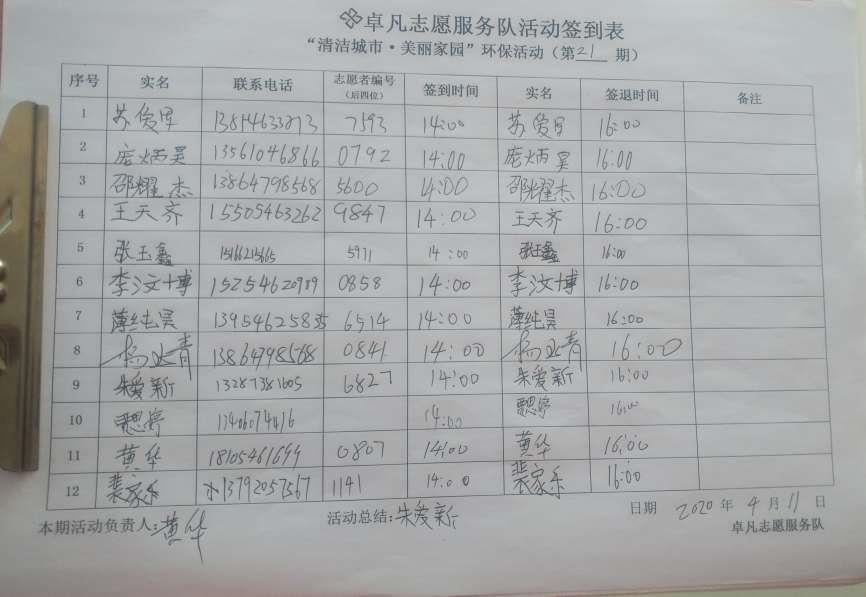 卓凡志愿服务队活动签到表
“清洁城市·美丽家园”环保活动（第21期）
序号 实名 联系电话 志愿者编号（后四位） 签到时间 实名 签退时间 备注
1 苏俊军 7593 14:00 苏俊军 16:00
2 庞炳昊 13561046866 0792 14:00 庞炳昊 16:00
3 邵耀杰 13864798568 5600 14:00 邵耀杰 16:00
4 王天齐 15505463262 9847 14:00 王天齐 16:00
5 张玉鑫 15166215665 5971 14:00 张玉鑫 16:00
6 李汶博 15254620989 0858 14:00 李汶博 16:00
7 薄纯昊 13954625835 6514 14:00 薄纯昊 16:00
8 杨 青 13864798568 0841 14:00 杨 青 16:00
9 朱爱新 13287381605 6827 14:00 朱爱新 16:00
10 14:00 16:00
11 黄华 18105461699 0807 14:00 黄华 16:00
12 裴家乐 13792057567 1141 14:00 裴家乐 16:00
本期活动负责人:黄华 活动总结:朱爱新 日期 2020年4月11日
卓凡志愿服务队